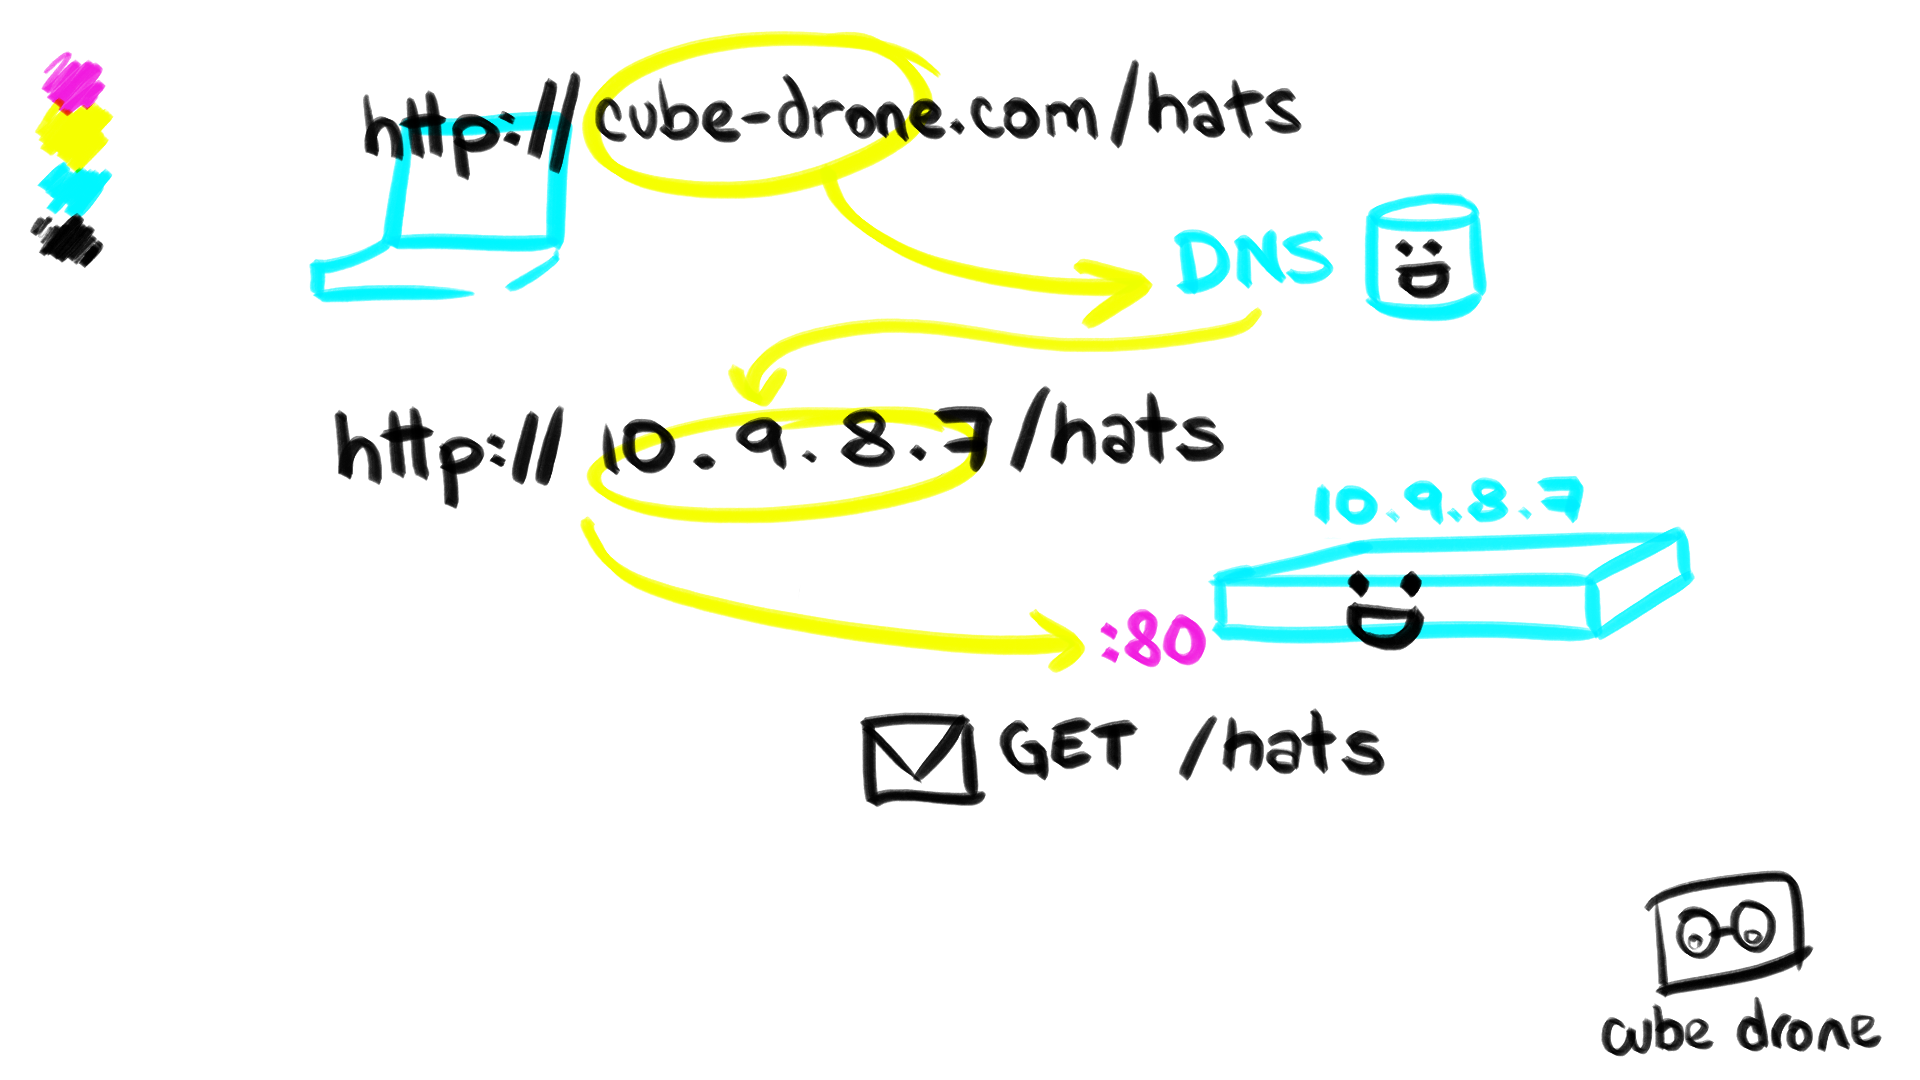 http:// cube-drone.com/hats
DNS
http:// 10.9.8.7/hats
10.9.8.7
:80
GET /hats
cube drone